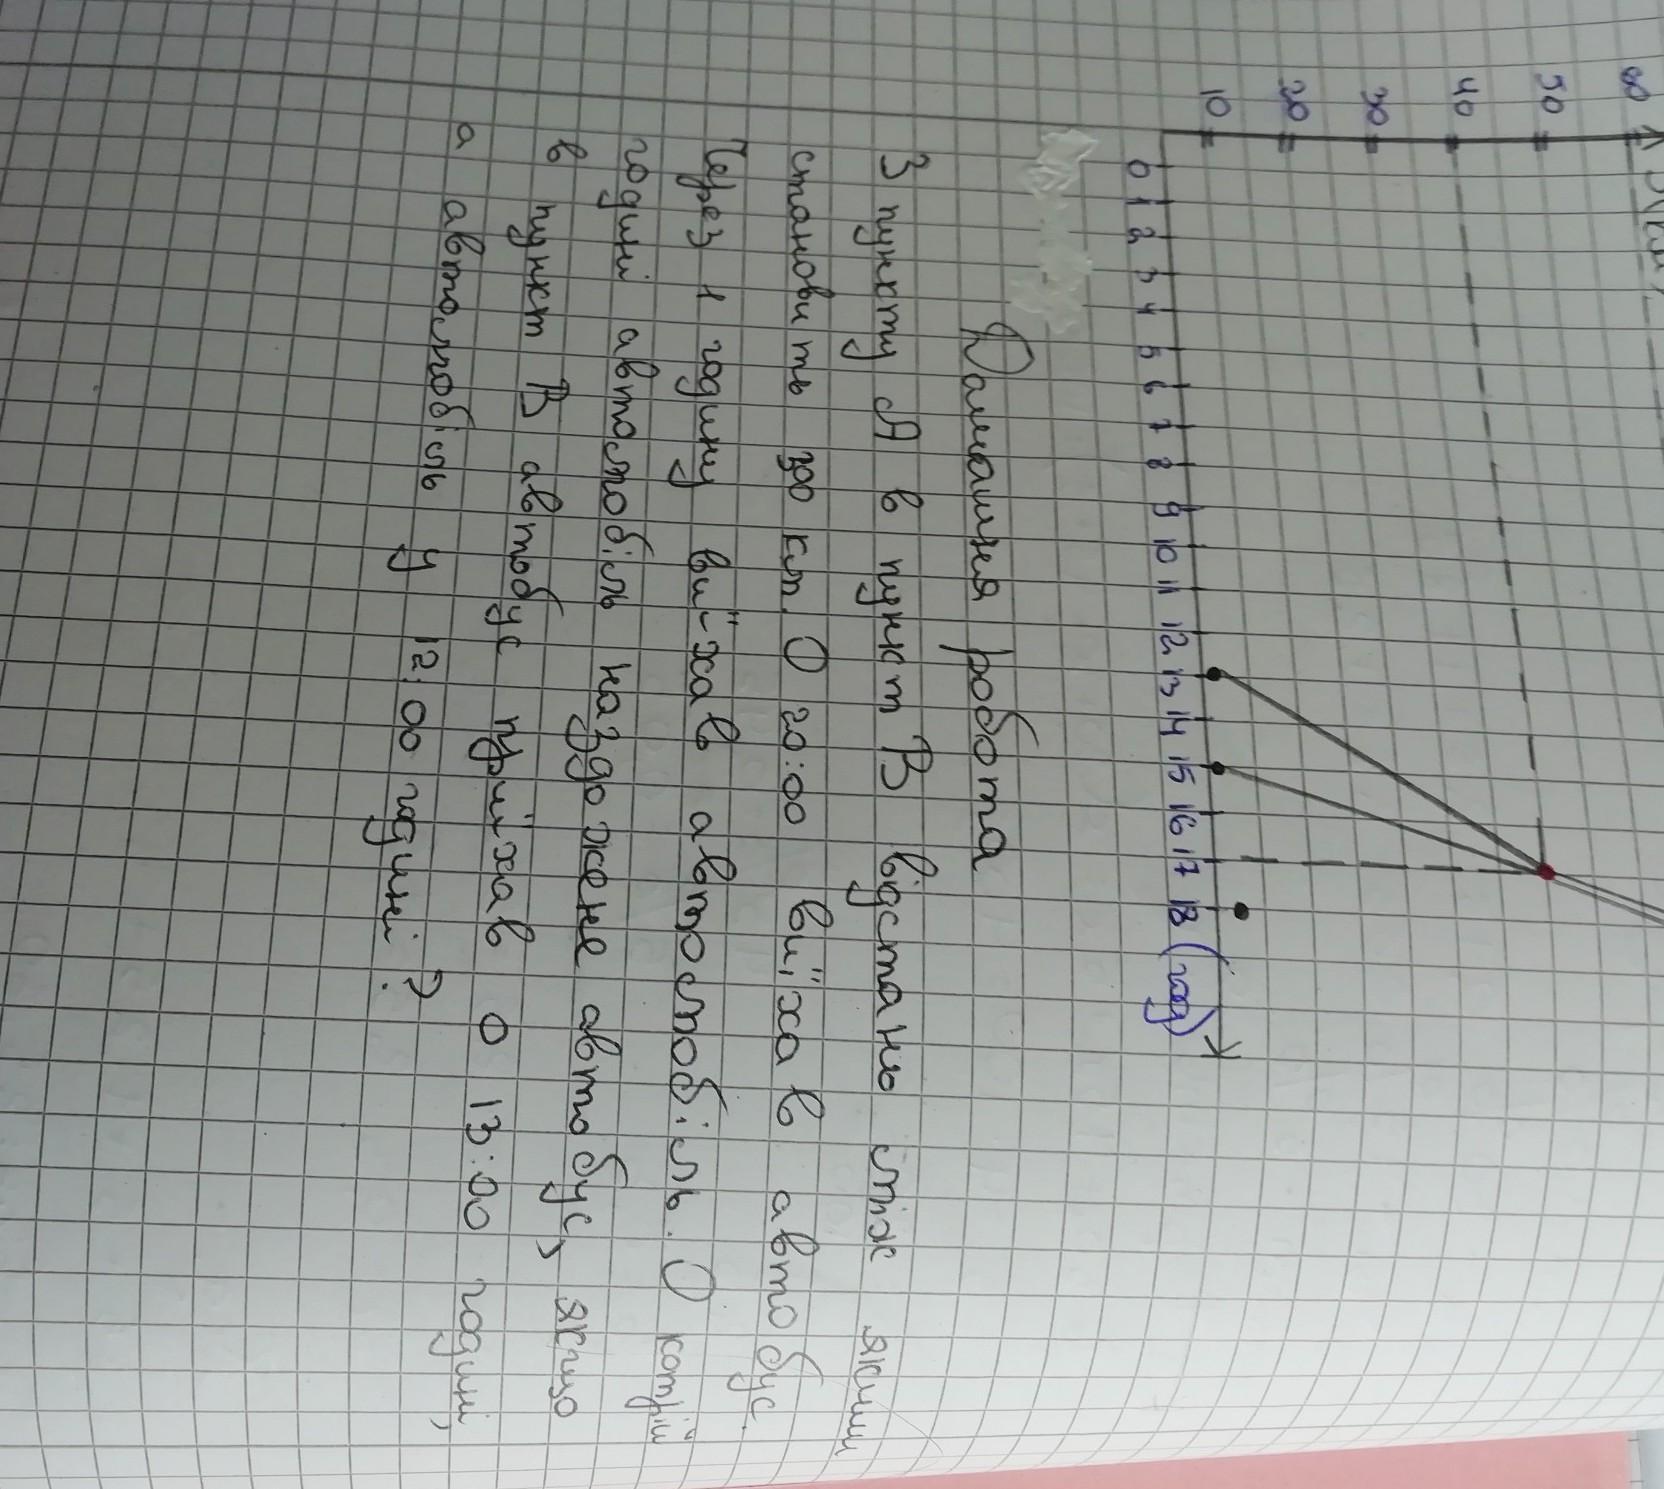 60
50
40
30
20
10
0 1 2 3 4 5 6 7 8 9 10 11 12 13 14 15 16 17 18 (год)
Домашня робота
З пункту А в пункт В відстань між якими
становить 300 км. О 20:00 виїхав автобус.
Через 1 годину виїхав автомобіль. О котрій
годині автомобіль наздожене автобус, якщо
в пункт В автобус приїхав о 13:00 годині,
а автомобіль у 12:00 годині?